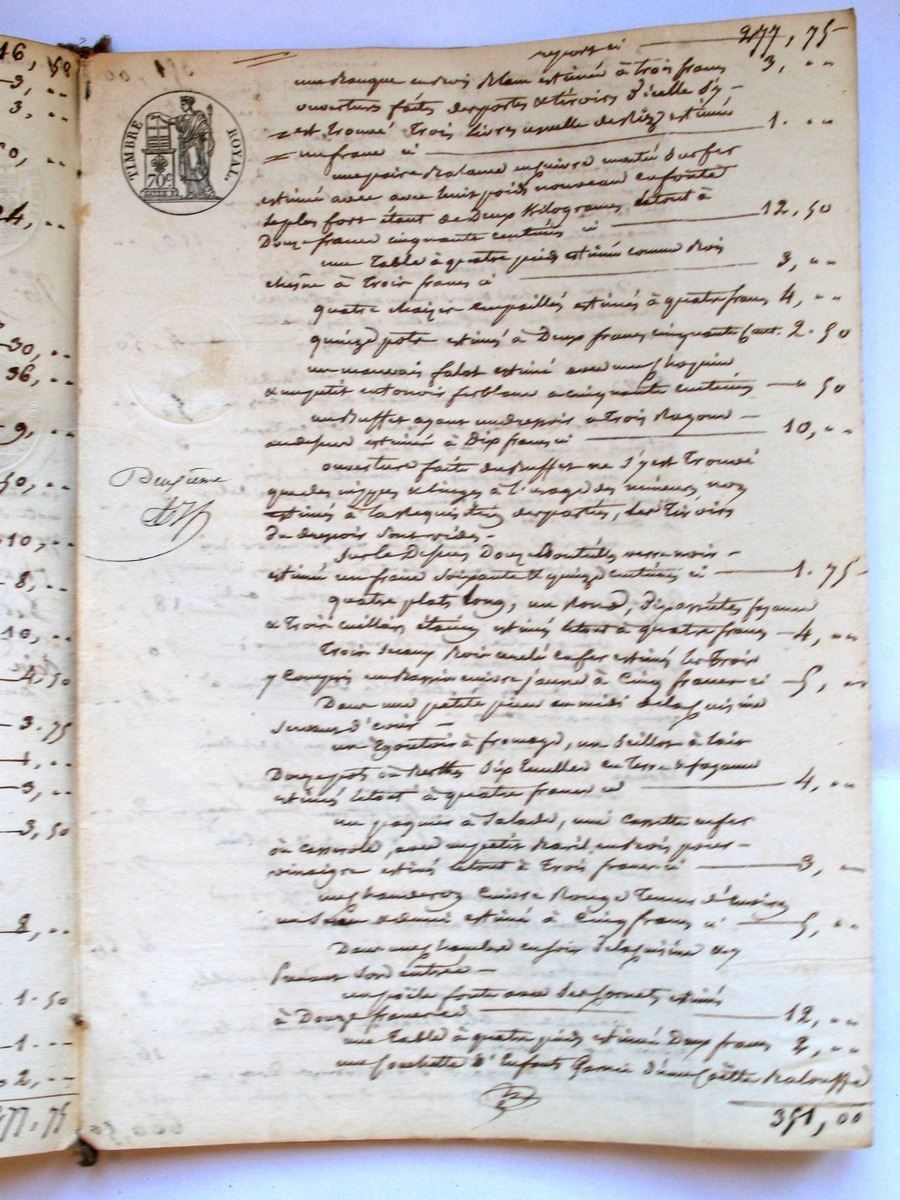 report ci 277, 75
une Banque en bois blanc estimée à trois francs 3, ""
ouverture faite des portes & tiroirs d'icelle s'y
est trouvé trois livres de Riz estimé
un franc ci 1. ""
une paire Balance en cuivre montée sur fer
estimé avec avec huit poids nouveau en fonte
le plus fort étant de Deux Kilogrames le tout à
Douze francs cinquante centimes ci 12, 50
une Table à quatre pieds estimée comme bois
chêne à Trois francs ci 3, ""
quatre chaises empaillés estimés à quatre francs 4, ""
quinze pots estimés à Deux francs cinquante cent. 2. 50
un mauvais falot estimé avec une
& un petit entonoir ferblanc à cinquante centimes " 50
un Buffet ayant un dressoir à trois Rayons
au dessus estimé à Dix francs ci 10, ""
ouverture faite du Buffet ne s'y est Trouvé
que des nippes & linges à l'usage des mineurs, non
estimés à la Requisition des parties, les Tiroirs
du dressoir sont vides.
Deuxième
Sur le Dessus Douze Bouteilles verre noir
estimé un franc soixante & quinze centimes ci 1. 75
quatre plats long, un Rond, dix assiettes fayance
& Trois cuillers étaing estimés le tout à quatre francs 4, ""
Trois seaux bois cerclé en fer estimés les Trois
y Compris un Bassin cuivre jaune à Cinq francs ci 5, ""
Dans une petite pièce au midi de la Cuisine
servant d'
un Egoutoir à fromage, un Seillot à lait
Douze pots ou Dix Ecuelles en Terre & fayance
estimés le tout à quatre francs ci 4, ""
un panier à Salade, une Cassette en fer
ou casserole, avec un petit Baril en bois pour
vinaigre estimé le tout à Trois francs ci 3, ""
un chauderon Cuivre Rouge Tenant d'Environ
un Seau & demi estimé à Cinq francs ci 5, ""
Dans une chambre de la cuisine &
Prenant son entrée
un poële fonte avec ses cornets estimés
à Douze francs ci 12, ""
une Table à quatre pieds estimée Deux francs 2, ""
une Couchette d'Enfants Garnie d'une Coëtte Balouffe
351, 00
TIMBRE ROYAL.
70c
16, 50
3, ""
3, ""
24, ""
30, ""
36, ""
9, ""
50, ""
10, ""
8, ""
10, ""
4. 50
3. 75
1, ""
3, ""
3, 50
2, ""
1. 50
1. ""
2, ""
277. 75